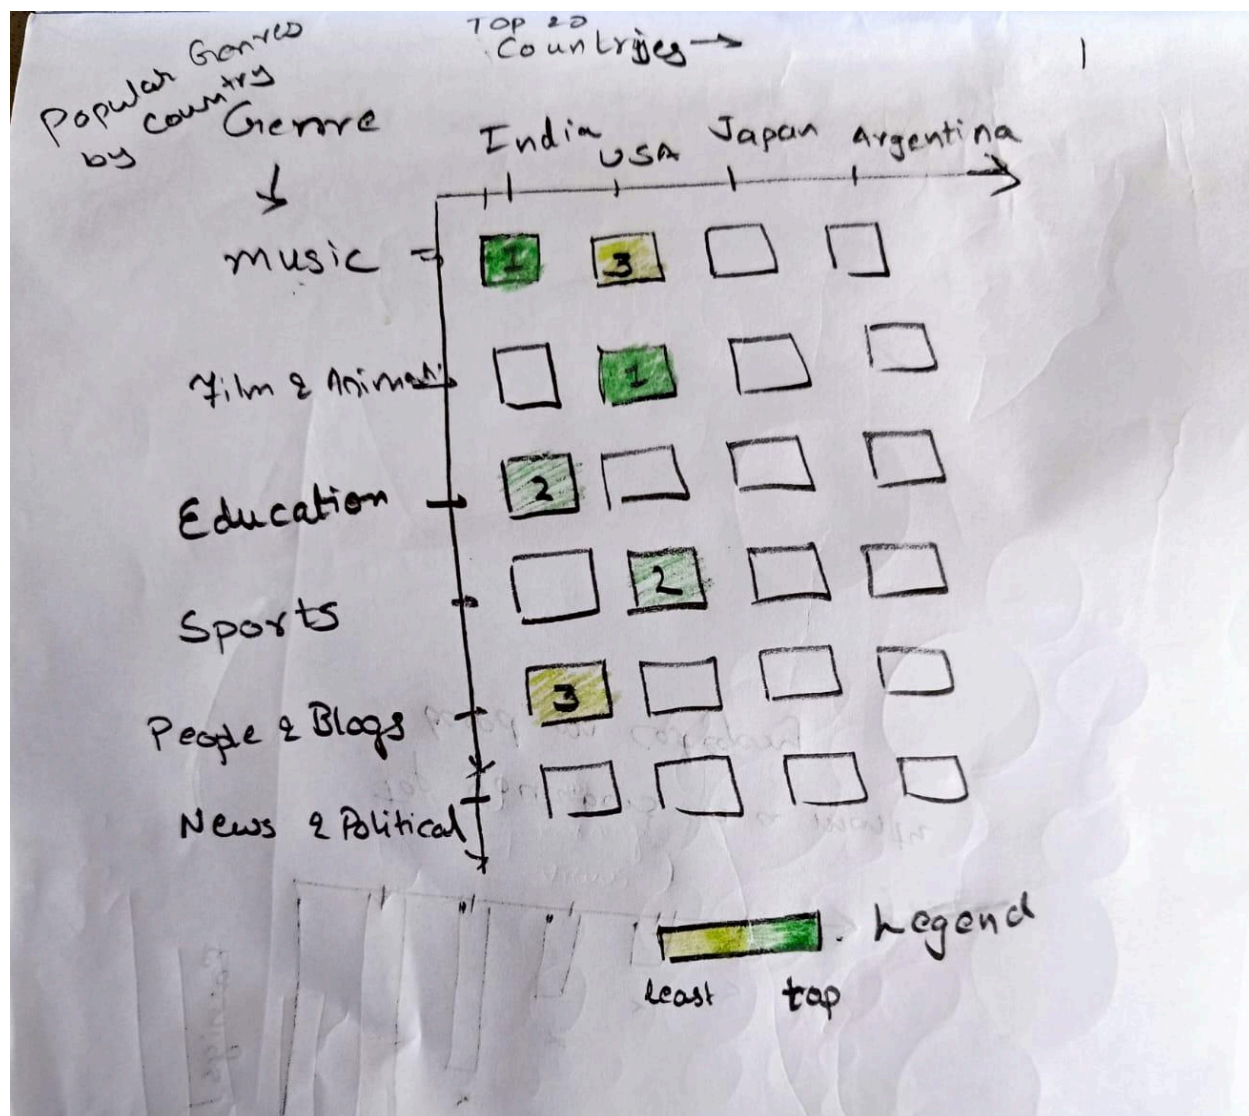 Popular Genres
by country
TOP 20
Countries →
1
Genre
India USA Japan Argentina
music
1 3
Film & Animati
1
Education
2
Sports
2
People & Blogs
3
News & Political
Legend
least top